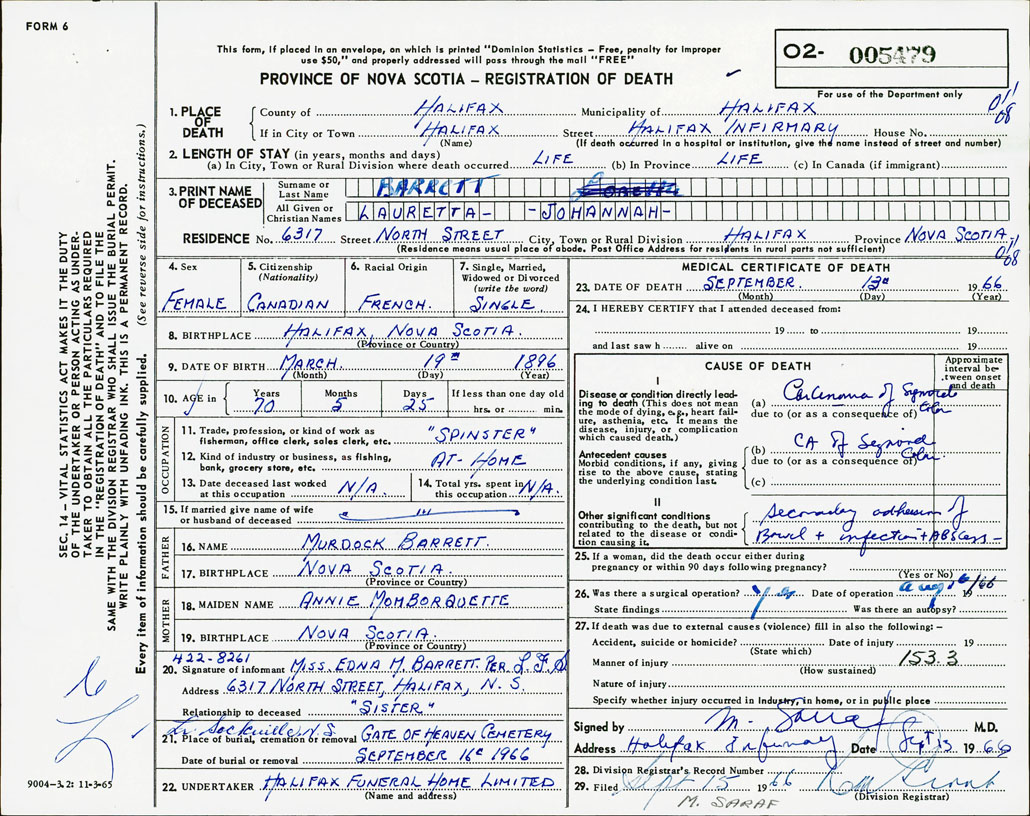 FORM 6
This form, if placed in an envelope, on which is printed "Dominion Statistics – Free, penalty for improper
use $50," and properly addressed will pass through the mail "FREE"
O2- 005479
PROVINCE OF NOVA SCOTIA – REGISTRATION OF DEATH
For use of the Department only
1. PLACE OF DEATH County of HALIFAX Municipality of HALIFAX
If in City or Town HALIFAX Street HALIFAX INFIRMARY House No.
(Name) (If death occurred in a hospital or institution, give the name instead of street and number)
2. LENGTH OF STAY (in years, months and days)
(a) In City, Town or Rural Division where death occurred LIFE (b) In Province LIFE (c) In Canada (if immigrant)
3. PRINT NAME OF DECEASED Surname or Last Name BARRETT
All Given or Christian Names LAURETTA- -JOHANNAH-
RESIDENCE No. 6317 Street NORTH STREET City, Town or Rural Division HALIFAX Province NOVA SCOTIA.
(Residence means usual place of abode. Post Office Address for residents in rural parts not sufficient)
4. Sex FEMALE
5. Citizenship (Nationality) CANADIAN
6. Racial Origin FRENCH.
7. Single, Married, Widowed or Divorced (write the word) SINGLE
8. BIRTHPLACE HALIFAX, NOVA SCOTIA.
(Province or Country)
9. DATE OF BIRTH MARCH 19th 1896
(Month) (Day) (Year)
10. AGE in Years 70 Months 5 Days 25 If less than one day old hrs. or min.
OCCUPATION
11. Trade, profession, or kind of work as fisherman, office clerk, sales clerk, etc. "SPINSTER"
12. Kind of industry or business, as fishing, bank, grocery store, etc. AT-HOME
13. Date deceased last worked at this occupation N/A.
14. Total yrs. spent in this occupation N/A.
15. If married give name of wife or husband of deceased
FATHER
16. NAME MURDOCK BARRETT.
17. BIRTHPLACE NOVA SCOTIA.
(Province or Country)
MOTHER
18. MAIDEN NAME ANNIE MOMBORQUETTE
19. BIRTHPLACE NOVA SCOTIA.
(Province or Country)
422-8261
20. Signature of informant MISS. EDNA M. BARRETT. PER. L. F.
Address 6317 NORTH STREET, HALIFAX, N. S.
Relationship to deceased "SISTER"
Lr. Sackville, N.S
21. Place of burial, cremation or removal GATE OF HEAVEN CEMETERY
Date of burial or removal SEPTEMBER 16 1966
22. UNDERTAKER HALIFAX FUNERAL HOME LIMITED
(Name and address)
MEDICAL CERTIFICATE OF DEATH
23. DATE OF DEATH SEPTEMBER. 13 19 66
(Month) (Day) (Year)
24. I HEREBY CERTIFY that I attended deceased from:
19 to 19
and last saw h alive on 19
CAUSE OF DEATH
Approximate interval between onset and death
I
Disease or condition directly leading to death (This does not mean the mode of dying, e.g., heart failure, asthenia, etc. It means the disease, injury, or complication which caused death.)
(a) Carcinoma of Sigmoid Colon
due to (or as a consequence of)
Antecedent causes
Morbid conditions, if any, giving rise to the above cause, stating the underlying condition last.
(b) CA of Sigmoid Colon
due to (or as a consequence of)
(c)
II
Other significant conditions contributing to the death, but not related to the disease or condition causing it.
secondary adhesion of
Bowel + infection + ABScess -
25. If a woman, did the death occur either during
pregnancy or within 90 days following pregnancy?
(Yes or No)
26. Was there a surgical operation? yes Date of operation aug 16/66 19
State findings Was there an autopsy?
27. If death was due to external causes (violence) fill in also the following: –
Accident, suicide or homicide? Date of injury 19
(State which)
Manner of injury 153.3
(How sustained)
Nature of injury
Specify whether injury occurred in industry, in home, or in public place
Signed by M. Saraf M.D.
Address Halifax Infirmary Date Sept 15 19 66
28. Division Registrar's Record Number
29. Filed Sept 15 19 66
(Division Registrar)
M. SARAF
SEC. 14 – VITAL STATISTICS ACT MAKES IT THE DUTY
OF THE UNDERTAKER OR PERSON ACTING AS UNDER-
TAKER TO OBTAIN ALL THE PARTICULARS REQUIRED
IN THE "REGISTRATION OF DEATH" AND TO FILE THE
SAME WITH THE DIVISION REGISTRAR WHO SHALL ISSUE THE BURIAL PERMIT.
WRITE PLAINLY WITH UNFADING INK. THIS IS A PERMANENT RECORD.
Every item of information should be carefully supplied. (See reverse side for instructions.)
9004-3.2: 11-3-65